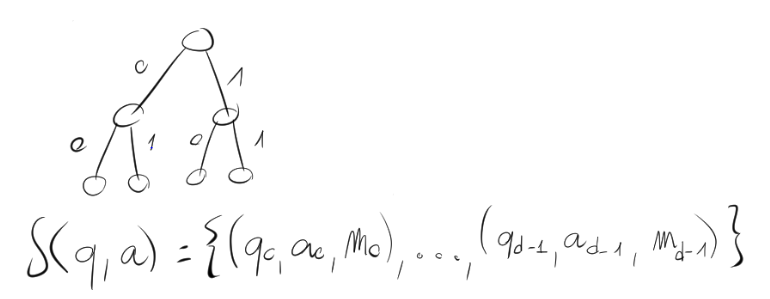 0 1
0 1 0 1
δ(q, a) = {(q₀, a₀, m₀), ..., (q_{d-1}, a_{d-1}, m_{d-1})}